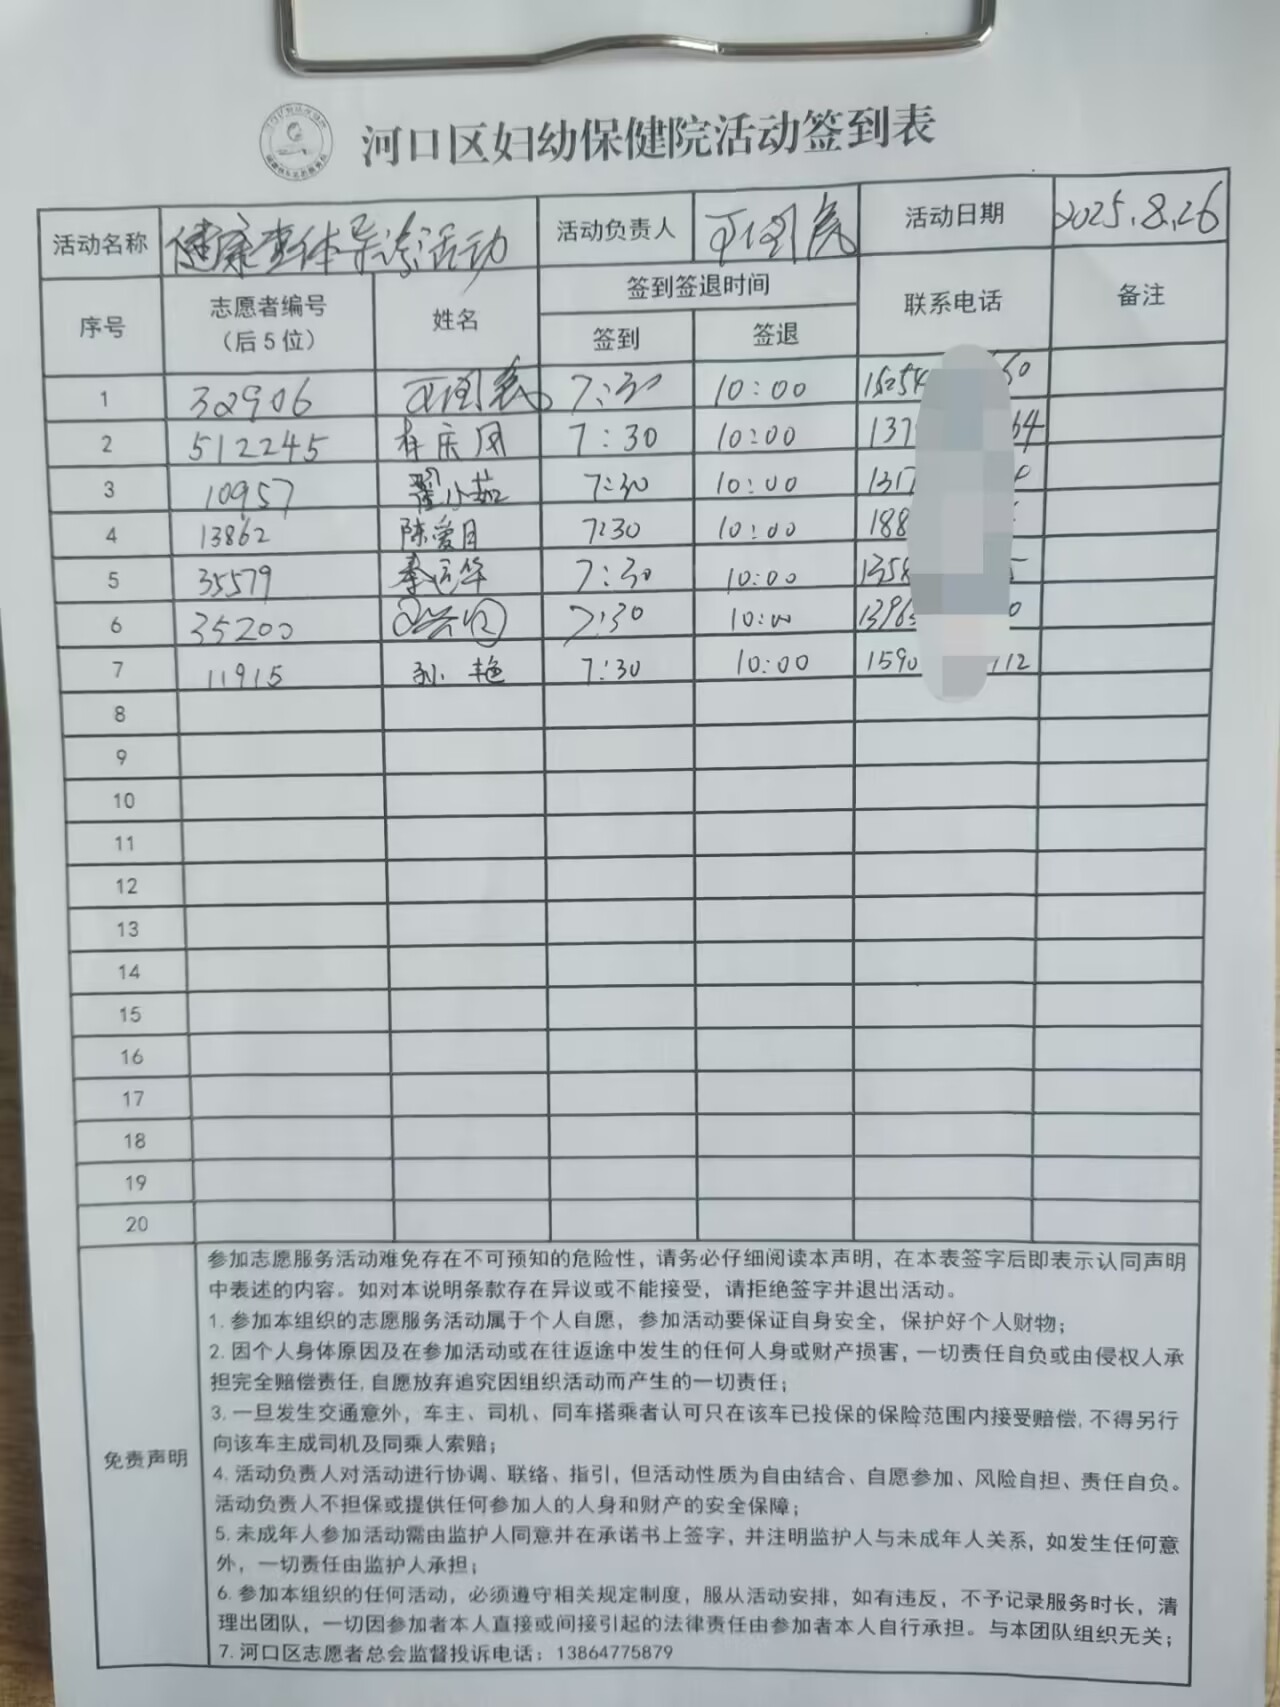 河口区妇幼保健院活动签到表
活动名称 健康查体导诊活动 活动负责人 活动日期 2025.8.26
序号 志愿者编号（后5位） 姓名 签到签退时间 联系电话 备注
签到 签退
1 32906 7:30 10:00 15254 60
2 512245 7:30 10:00 137 64
3 10957 翟小茹 7:30 10:00 1317
4 13862 陈爱月 7:30 10:00 188
5 35579 李运华 7:30 10:00 1358 5
6 35200 7:30 10:00 1396 0
7 11915 孙艳 7:30 10:00 1590 112
8
9
10
11
12
13
14
15
16
17
18
19
20
免责声明
参加志愿服务活动难免存在不可预知的危险性，请务必仔细阅读本声明，在本表签字后即表示认同声明
中表述的内容。如对本说明条款存在异议或不能接受，请拒绝签字并退出活动。
1. 参加本组织的志愿服务活动属于个人自愿，参加活动要保证自身安全，保护好个人财物；
2. 因个人身体原因及在参加活动或在往返途中发生的任何人身或财产损害，一切责任自负或由侵权人承
担完全赔偿责任, 自愿放弃追究因组织活动而产生的一切责任；
3. 一旦发生交通意外，车主、司机、同车搭乘者认可只在该车已投保的保险范围内接受赔偿, 不得另行
向该车主成司机及同乘人索赔；
4. 活动负责人对活动进行协调、联络、指引，但活动性质为自由结合、自愿参加、风险自担、责任自负。
活动负责人不担保或提供任何参加人的人身和财产的安全保障；
5. 未成年人参加活动需由监护人同意并在承诺书上签字，并注明监护人与未成年人关系，如发生任何意
外，一切责任由监护人承担；
6. 参加本组织的任何活动，必须遵守相关规定制度，服从活动安排，如有违反，不予记录服务时长，清
理出团队，一切因参加者本人直接或间接引起的法律责任由参加者本人自行承担。与本团队组织无关；
7. 河口区志愿者总会监督投诉电话：13864775879